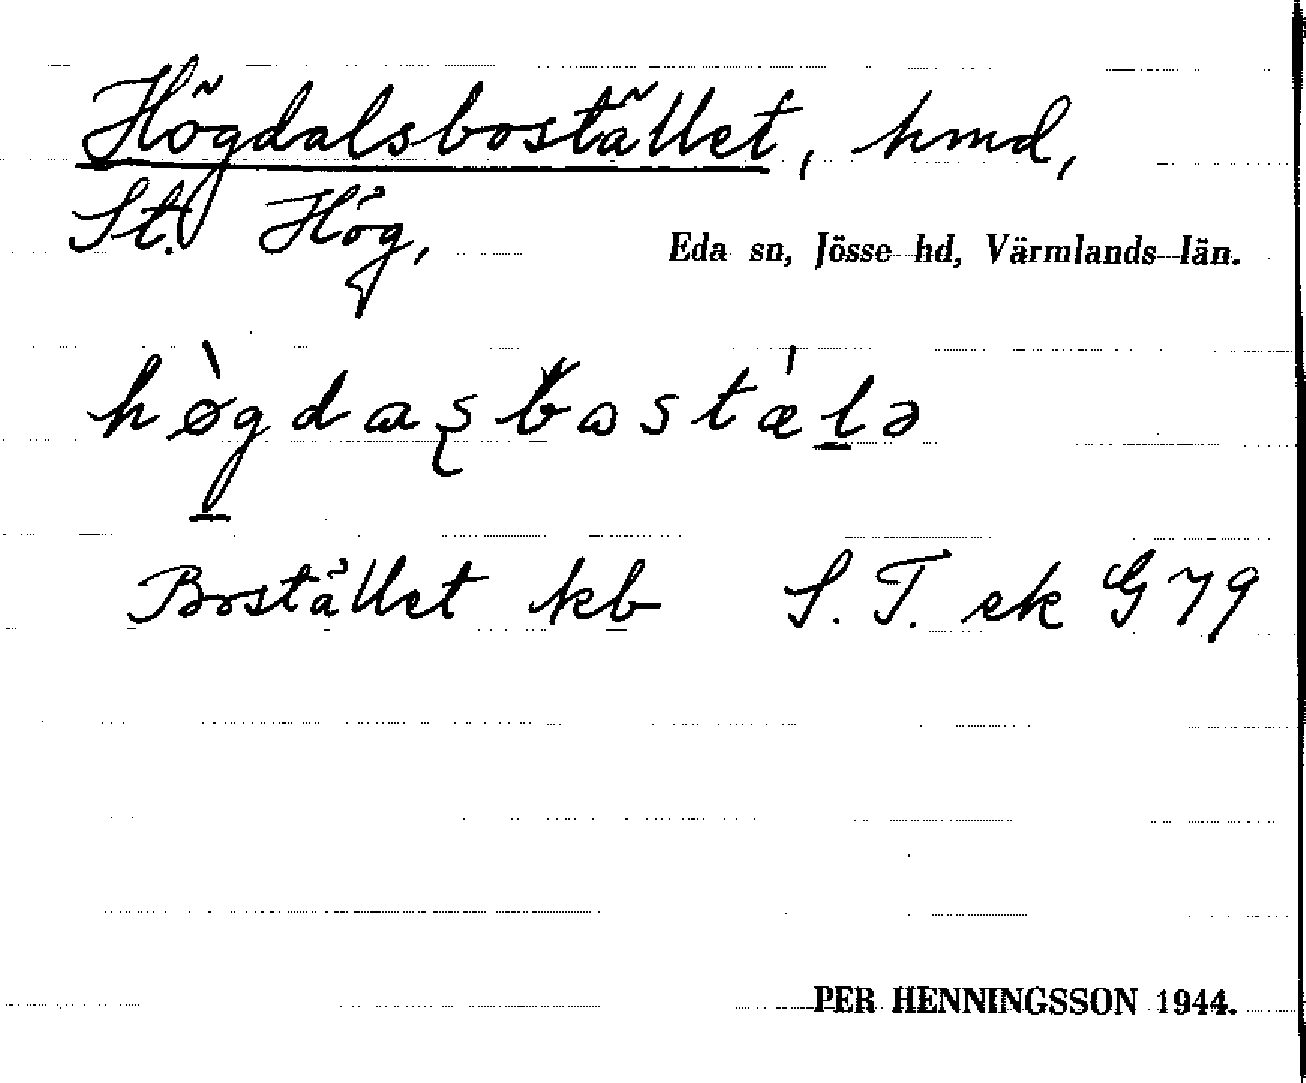 Högdalsbostället, hmd,
St. Hög,
Eda sn, Jösse hd, Värmlands län.
hø̀gdaʂbostǽlə
Bostället kb S. T. ek G 79
PER HENNINGSSON 1944.